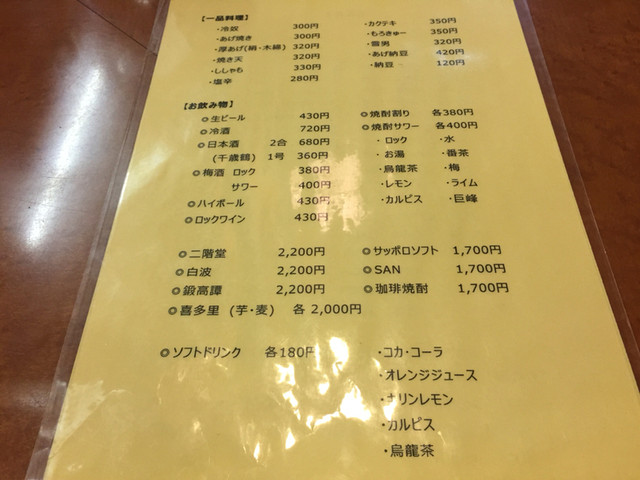 【一品料理】
・冷奴 300円
・あげ焼き 300円
・厚あげ(絹・木綿) 320円
・焼き天 320円
・ししゃも 330円
・塩辛 280円
・カクテキ 350円
・もろきゅー 350円
・雪男 320円
・あげ納豆 420円
・納豆 120円
【お飲み物】
◎生ビール 430円
◎冷酒 720円
◎日本酒 2合 680円
(千歳鶴) 1号 360円
◎梅酒 ロック 380円
サワー 400円
◎ハイボール 430円
◎ロックワイン 430円
◎焼酎割り 各380円
◎焼酎サワー 各400円
・ロック ・水
・お湯 ・番茶
・烏龍茶 ・梅
・レモン ・ライム
・カルピス ・巨峰
◎二階堂 2,200円
◎白波 2,200円
◎鍛高譚 2,200円
◎喜多里 (芋・麦) 各 2,000円
◎サッポロソフト 1,700円
◎SAN 1,700円
◎珈琲焼酎 1,700円
◎ソフトドリンク 各180円
・コカ・コーラ
・オレンジジュース
・キリンレモン
・カルピス
・烏龍茶